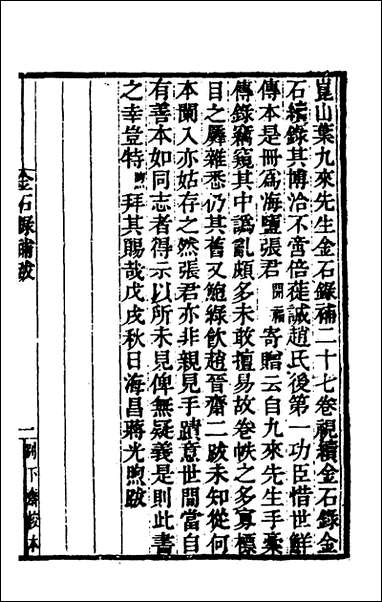 崑山葉九來先生金石錄補二十七卷視續金石錄金
石續錄其博洽不啻倍蓰誠趙氏後第一功臣惜世鮮
傳本是冊爲海鹽張君開福寄贈云自九來先生手藁
傳錄竊窺其中譌亂頗多未敢擅易故卷帙之多寡標
目之羼雜悉仍其舊又鮑綠飲趙晉齋二跋未知從何
本闌入亦姑存之然張君亦非親見手蹟意世間當自
有善本如同志者得示以所未見俾無疑義是則此書
之幸豈特煦拜其賜哉戊戌秋日海昌蔣光煦跋
金石錄補跋
一
別下齋校本